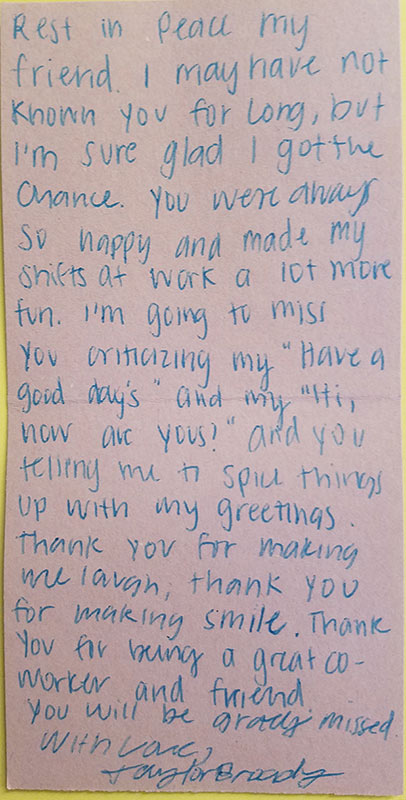 Rest in peace my
friend. I may have not
known you for long, but
I'm sure glad I got the
chance. You were always
so happy and made my
shifts at work a lot more
fun. I'm going to miss
you criticizing my "Have a
good day's" and my "Hi,
how are yous?" and you
telling me to spice things
up with my greetings.
Thank you for making
me laugh, thank you
for making smile. Thank
you for being a great co-
worker and friend.
You will be grately missed.
With Love,
Taylor Broody